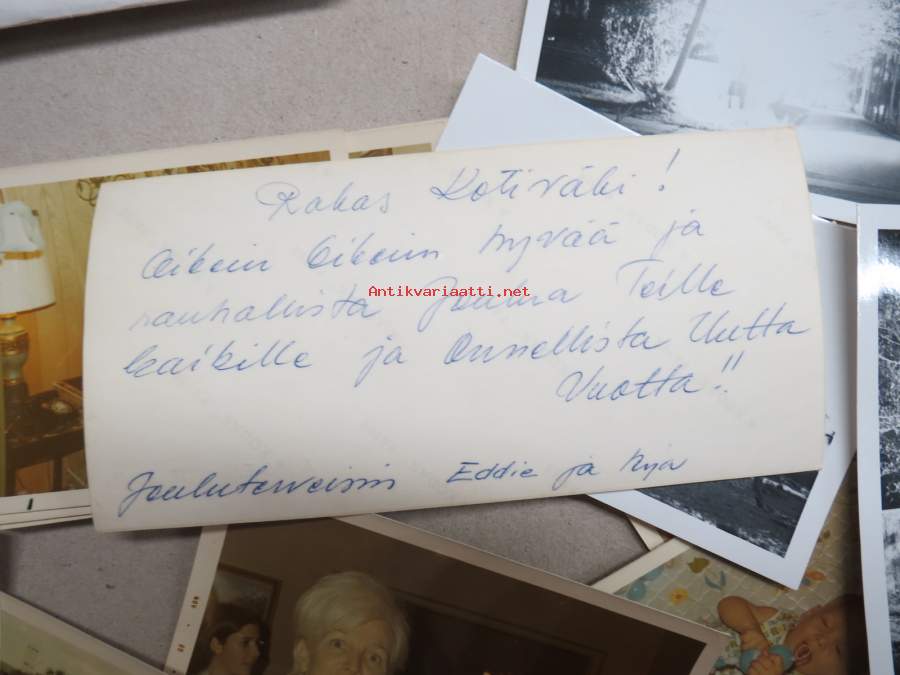 Rakas Kotiväki!
Oikein Oikein hyvää ja
rauhallista Joulua Teille
kaikille ja Onnellista Uutta
Vuotta!!
Jouluterveisin Eddie ja
Antikvariaatti.net